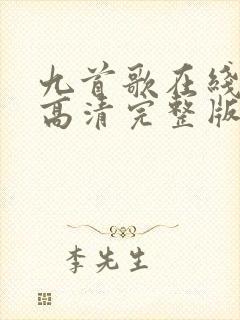 九首歌在线
高清完整版
李先生